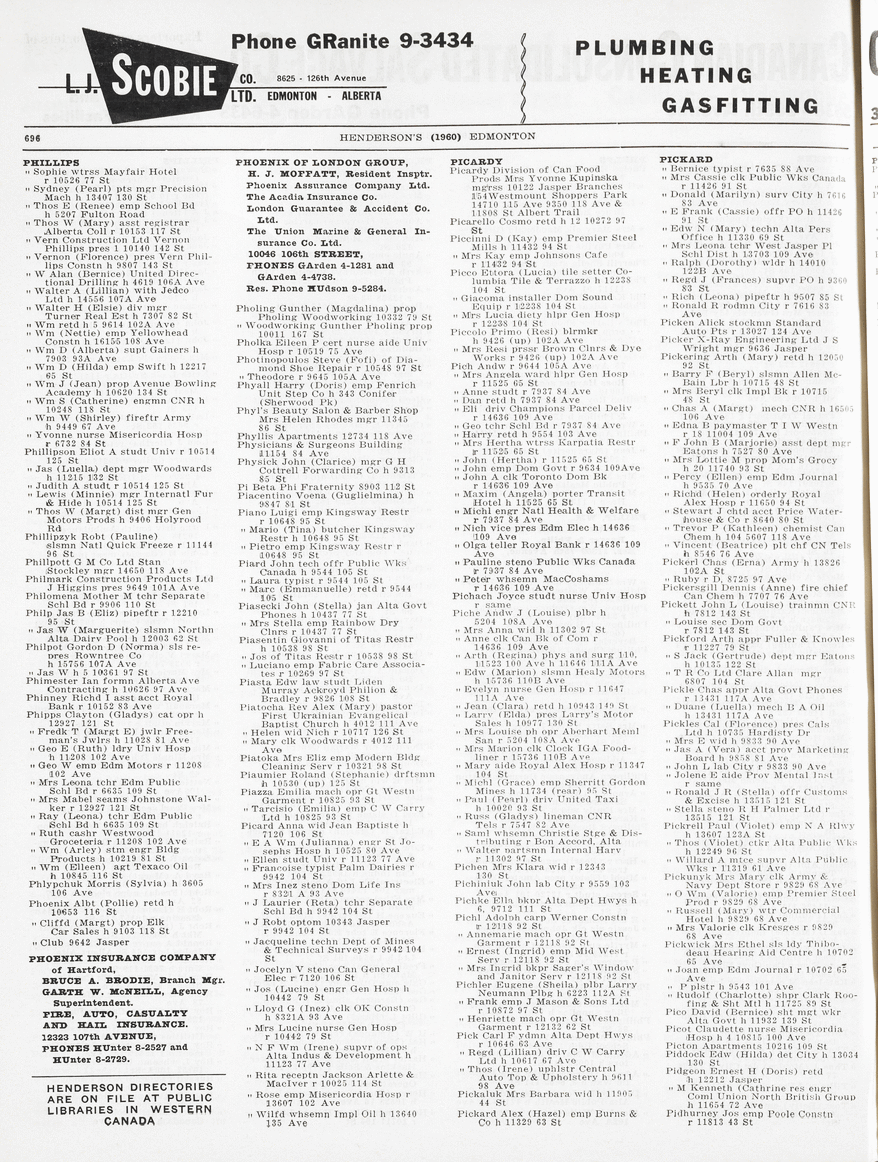 Phone GRanite 9-3434
L. J. SCOBIE CO. LTD.
8625 - 126th Avenue
EDMONTON - ALBERTA
PLUMBING
HEATING
GASFITTING
696
HENDERSON'S (1960) EDMONTON
PHILLIPS
" Sophie wtrss Mayfair Hotel
r 10526 77 St
" Sydney (Pearl) pts mgr Precision
Mach h 13407 130 St
" Thos E (Renee) emp School Bd
h 5207 Fulton Road
" Thos W (Mary) asst registrar
Alberta Coll r 10153 117 St
" Vern Construction Ltd Vernon
Phillips pres 1 10140 142 St
" Vernon (Florence) pres Vern Phil-
lips Constn h 9807 143 St
" W Alan (Bernice) United Direc-
tional Drilling h 4619 106A Ave
" Walter A (Lillian) with Jedco
Ltd h 14556 107A Ave
" Walter H (Elsie) div mgr
Turner Real Est h 7307 82 St
" Wm retd h 5 9614 102A Ave
" Wm (Nettie) emp Yellowhead
Constn h 16155 108 Ave
" Wm D (Alberta) supt Gainers h
7903 93A Ave
" Wm D (Hilda) emp Swift h 12217
65 St
" Wm J (Jean) prop Avenue Bowling
Academy h 10620 134 St
" Wm S (Catherine) engmn CNR h
10248 118 St
" Wm W (Shirley) fireftr Army
h 9449 67 Ave
" Yvonne nurse Misericordia Hosp
r 6732 84 St
Phillipson Eliot A studt Univ r 10514
125 St
" Jas (Luella) dept mgr Woodwards
h 11215 132 St
" Judith A studt r 10514 125 St
" Lewis (Minnie) mgr Internatl Fur
& Hide h 10514 125 St
" Thos W (Margt) dist mgr Gen
Motors Prods h 9406 Holyrood
Rd
Phillipzyk Robt (Pauline)
slsmn Natl Quick Freeze r 11144
96 St
Phillpott G M Co Ltd Stan
Stockley mgr 14650 118 Ave
Philmark Construction Products Ltd
J Higgins pres 9649 101A Ave
Philomena Mother M tchr Separate
Schl Bd r 9906 110 St
Philp Jas B (Eliz) pipeftr r 12210
95 St
" Jas W (Marguerite) slsmn Northn
Alta Dairy Pool h 12003 62 St
Philpot Gordon D (Norma) sls re-
pres Rowntree Co
h 15756 107A Ave
" Jas W h 5 10361 97 St
Phimester Ian formn Alberta Ave
Contracting h 10626 97 Ave
Phinney Richd I asst acct Royal
Bank r 10152 83 Ave
Phipps Clayton (Gladys) cat opr h
12927 121 St
" Fredk T (Margt E) jwlr Free-
man's Jwlrs h 11028 81 Ave
" Geo E (Ruth) ldry Univ Hosp
h 11208 102 Ave
" Geo W emp Edm Motors r 11208
102 Ave
" Mrs Leona tchr Edm Public
Schl Bd r 6635 109 St
" Mrs Mabel seams Johnstone Wal-
ker r 12927 121 St
" Ray (Leona) tchr Edm Public
Schl Bd h 6635 109 St
" Ruth cashr Westwood
Groceteria r 11208 102 Ave
" Wm (Arley) stm engr Bldg
Products h 10219 81 St
" Wm (Eileen) agt Texaco Oil
h 10845 116 St
Phlypchuk Morris (Sylvia) h 3605
106 Ave
Phoenix Albt (Pollie) retd h
10653 116 St
" Cliffd (Margt) prop Elk
Car Sales h 9103 118 St
" Club 9642 Jasper
PHOENIX INSURANCE COMPANY
of Hartford,
BRUCE A. BRODIE, Branch Mgr.
GARTH W. McNEILL, Agency
Superintendent.
FIRE, AUTO, CASUALTY
AND HAIL INSURANCE.
12323 107th AVENUE,
PHONES HUnter 8-2527 and
HUnter 8-2729.
HENDERSON DIRECTORIES
ARE ON FILE AT PUBLIC
LIBRARIES IN WESTERN
CANADA
PHOENIX OF LONDON GROUP,
H. J. MOFFATT, Resident Insptr.
Phoenix Assurance Company Ltd.
The Acadia Insurance Co.
London Guarantee & Accident Co.
Ltd.
The Union Marine & General In-
surance Co. Ltd.
10046 106th STREET,
PHONES GArden 4-1281 and
GArden 4-4738.
Res. Phone HUdson 9-5284.
Pholing Gunther (Magdalina) prop
Pholing Woodworking 10332 79
" Woodworking Gunther Pholing prop
10011 167 St
Pholka Eileen P cert nurse aide Univ
Hosp r 10519 75 Ave
Photinopoulos Steve (Fofi) of Dia-
mond Shoe Repair r 10548 97 St
" Theodore r 9645 105A Ave
Phyall Harry (Doris) emp Fenrich
Unit Step Co h 343 Conifer
(Sherwood Pk)
Phyl's Beauty Salon & Barber Shop
Mrs Helen Rhodes mgr 11345
86 St
Phyllis Apartments 12734 118 Ave
Physicians & Surgeons Building
11154 84 Ave
Physick John (Clarice) mgr G H
Cottrell Forwarding Co h 9313
85 St
Pi Beta Phi Fraternity 8903 112 St
Piacentino Voena (Guglielmina) h
9847 81 St
Piano Luigi emp Kingsway Restr
r 10648 95 St
" Mario (Tina) butcher Kingsway
Restr h 10648 95 St
" Pietro emp Kingsway Restr r
10648 95 St
Piard John tech offr Public Wks
Canada h 9544 105 St
" Laura typist r 9544 105 St
" Marc (Emmanuelle) retd r 9544
105 St
Piasecki John (Stella) jan Alta Govt
Phones h 10437 77 St
" Mrs Stella emp Rainbow Dry
Clnrs r 10437 77 St
Piasentin Giovanni of Titas Restr
h 10538 98 St
" Jos of Titas Restr r 10538 98 St
" Luciano emp Fabric Care Associa-
tes r 10269 97 St
Piasta Edw law studt Liden
Murray Ackroyd Philion &
Bradley r 9826 108 St
Piatocha Rev Alex (Mary) pastor
First Ukrainian Evangelical
Baptist Church h 4012 111 Ave
" Helen wid Nich r 10717 126 St
" Mary clk Woodwards r 4012 111
Ave
Piatoka Mrs Eliz emp Modern Bldg
Cleaning Serv r 10321 98 St
Piaumier Roland (Stephanie) drftsmn
h 10530 (up) 125 St
Piazza Emilia mach opr Gt Westn
Garment r 10825 93 St
" Tarcisio (Emilia) emp C W Carry
Ltd h 10825 93 St
Picard Anna wid Jean Baptiste h
7120 106 St
" E A Wm (Julianna) engr St Jo-
sephs Hosp h 10525 80 Ave
" Ellen studt Univ r 11123 77 Ave
" Francoise typist Palm Dairies r
9942 104 St
" Mrs Inez steno Dom Life Ins
r 8321 A 93 Ave
" J Laurier (Reta) tchr Separate
Schl Bd h 9942 104 St
" J Robt optom 10343 Jasper
r 9942 104 St
" Jacqueline techn Dept of Mines
& Technical Surveys r 9942 104
St
" Jocelyn V steno Can General
Elec r 7120 106 St
" Jos (Lucine) engr Gen Hosp h
10442 79 St
" Lloyd G (Inez) clk OK Constn
h 8321A 93 Ave
" Mrs Lucine nurse Gen Hosp
r 10442 79 St
" N F Wm (Irene) supvr of ops
Alta Indus & Development h
11123 77 Ave
" Rita receptn Jackson Arlette &
MacIver r 10025 114 St
" Rose emp Misericordia Hosp r
13607 102 Ave
" Wilfd whsemn Impl Oil h 13640
135 Ave
PICARDY
Picardy Division of Can Food
Prods Mrs Yvonne Kupinska
mgrss 10122 Jasper Branches
154 Westmount Shoppers Park
14710 115 Ave 9350 118 Ave &
11808 St Albert Trail
Picarello Cosmo retd h 12 10272 97
St
Piccinni D (Kay) emp Premier Steel
Mills h 11432 94 St
" Mrs Kay emp Johnsons Cafe
r 11432 94 St
Picco Ettora (Lucia) tile setter Co-
lumbia Tile & Terrazzo h 12238
104 St
" Giacoma installer Dom Sound
Equip r 12238 104 St
" Mrs Lucia diety hlpr Gen Hosp
r 12238 104 St
Piccolo Primo (Resi) blrmkr
h 9426 (up) 102A Ave
" Mrs Resi prssr Brown Clnrs & Dye
Works r 9426 (up) 102A Ave
Pich Andw r 9644 105A Ave
" Mrs Angela ward hlpr Gen Hosp
r 11525 65 St
" Anne studt r 7937 84 Ave
" Dan retd h 7937 84 Ave
" Eli driv Champions Parcel Deliv
r 14636 109 Ave
" Geo tchr Schl Bd r 7937 84 Ave
" Harry retd h 9554 103 Ave
" Mrs Hertha wtrss Karpatia Restr
r 11525 65 St
" John (Hertha) r 11525 65 St
" John emp Dom Govt r 9634 109Ave
" John A clk Toronto Dom Bk
r 14636 109 Ave
" Maxim (Angela) porter Transit
Hotel h 11525 65 St
" Michl engr Natl Health & Welfare
r 7937 84 Ave
" Nich vice pres Edm Elec h 14636
109 Ave
" Olga teller Royal Bank r 14636 109
Ave
" Pauline steno Public Wks Canada
r 7937 84 Ave
" Peter whsemn MacCoshams
r 14636 109 Ave
Pichach Joyce studt nurse Univ Hosp
r same
Piche Andw J (Louise) plbr h
5204 108A Ave
" Mrs Anna wid h 11302 97 St
" Anne clk Can Bk of Com r
14636 109 Ave
" Arth (Regina) phys and surg 110,
11523 100 Ave h 11646 111A Ave
" Edw (Marion) slsmn Healy Motors
h 15736 110B Ave
" Evelyn nurse Gen Hosp r 11647
111A Ave
" Jean (Clara) retd h 10943 149 St
" Larry (Elda) pres Larry's Motor
Sales h 10977 130 St
" Mrs Louise ph opr Aberhart Meml
San r 5204 108A Ave
" Mrs Marion clk Clock IGA Food-
liner r 15736 110B Ave
" Mary aide Royal Alex Hosp r 11347
104 St
" Michl (Grace) emp Sherritt Gordon
Mines h 11734 (rear) 95 St
" Paul (Pearl) driv United Taxi
h 10020 93 St
" Russ (Gladys) lineman CNR
Tels r 7547 82 Ave
" Saml whsemn Christie Stge & Dis-
tributing r Bon Accord, Alta
" Walter partsmn Internal Harv
r 11302 97 St
Pichen Mrs Klara wid r 12343
130 St
Pichiniuk John lab City r 9559 103
Ave
Pichke Ella bkpr Alta Dept Hwys h
6, 9712 111 St
Pichl Adolph carp Werner Constn
r 12118 92 St
" Annemarie mach opr Gt Westn
Garment r 12118 92 St
" Ernest (Ingrid) emp Mid West
Serv r 12118 92 St
" Mrs Ingrid bkpr Sager's Window
and Janitor Serv r 12118 92 St
Pichler Eugene (Sheila) plbr Larry
Neumann Plbg h 6223 112A St
" Frank emp J Mason & Sons Ltd
r 10872 97 St
" Henriette mach opr Gt Westn
Garment r 12132 62 St
Pick Carl F ydmn Alta Dept Hwys
r 10646 63 Ave
" Regd (Lillian) driv C W Carry
Ltd h 10617 67 Ave
" Thos (Irene) uphlstr Central
Auto Top & Upholstery h 9611
98 Ave
Pickaluk Mrs Barbara wid h 11905
44 St
Pickard Alex (Hazel) emp Burns &
Co h 11329 63 St
PICKARD
" Bernice typist r 7635 88 Ave
" Mrs Cassie clk Public Wks Canada
r 11426 91 St
" Donald (Marilyn) surv City h 7616
83 Ave
" E Frank (Cassie) offr PO h 11426
91 St
" Edw N (Mary) techn Alta Pers
Office h 11330 69 St
" Mrs Leona tchr West Jasper Pl
Schl Dist h 13703 109 Ave
" Ralph (Dorothy) wldr h 14010
122B Ave
" Regd J (Frances) supvr PO h 9360
83 St
" Rich (Leona) pipeftr h 9507 85 St
" Ronald R rodmn City r 7616 83
Ave
Picken Aliek stockmn Standard
Auto Pts r 13027 124 Ave
Picker X-Ray Engineering Ltd J S
Wright mgr 9636 Jasper
Pickering Arth (Mary) retd h 12050
92 St
" Barry F (Beryl) slsmn Allen Mc-
Bain Lbr h 10715 48 St
" Mrs Beryl clk Impl Bk r 10715
48 St
" Chas A (Margt) mech CNR h 16505
106 Ave
" Edna B paymaster T I W Westn
r 18 11004 109 Ave
" F John B (Marjorie) asst dept mgr
Eatons h 7527 80 Ave
" Mrs Lottie M prop Mom's Grocy
h 20 11740 93 St
" Percy (Ellen) emp Edm Journal
h 9535 70 Ave
" Richd (Helen) orderly Royal
Alex Hosp r 11650 94 St
" Stewart J chtd acct Price Water-
house & Co r 8640 80 St
" Trevor P (Kathleen) chemist Can
Chem h 104 5607 118 Ave
" Vincent (Beatrice) plt chf CN Tels
h 8546 76 Ave
Pickerl Chas (Erna) Army h 13826
102A St
" Ruby r D, 8725 97 Ave
Pickersgill Dennis (Anne) fire chief
Can Chem h 7707 76 Ave
Pickett John L (Louise) trainmn CNR
h 7812 143 St
" Louise sec Dom Govt
r 7812 143 St
Pickford Arth appr Fuller & Knowles
r 11227 79 St
" S Jack (Gertrude) dept mgr Eatons
h 10135 122 St
" T R Co Ltd Clare Allan mgr
6807 104 St
Pickle Chas appr Alta Govt Phones
r 13431 117A Ave
" Duane (Luella) mech B A Oil
h 13431 117A Ave
Pickles Cal (Florence) pres Cals
Ltd h 10735 Hardisty Dr
" Mrs E wid h 9833 90 Ave
" Jas A (Vera) acct prov Marketing
Board h 9858 81 Ave
" John L lab City r 9833 90 Ave
" Jolene E aide Prov Mental Inst
r same
" Ronald J R (Stella) offr Customs
& Excise h 13515 121 St
" Stella steno R H Palmer Ltd r
13515 121 St
Pickrell Paul (Violet) emp N A Rlwy
h 13607 123A St
" Thos (Violet) ctkr Alta Public Wks
h 12249 96 St
" Willard A mtce supvr Alta Public
Wks r 11319 61 Ave
Pickunyk Mrs Mary clk Army &
Navy Dept Store r 9829 68 Ave
" O Wm (Valorie) emp Premier Steel
Prod r 9829 68 Ave
" Russell (Mary) wtr Commercial
Hotel h 9829 68 Ave
" Mrs Valorie clk Kresges r 9829
68 Ave
Pickwick Mrs Ethel sls ldy Thibo-
deau Hearing Aid Centre h 10702
65 Ave
" Joan emp Edm Journal r 10702 65
Ave
" P plstr h 9543 101 Ave
" Rudolf (Charlotte) shpr Clark Roo-
fing & Sht Mtl h 11725 89 St
Pico David (Bernice) sht mgt wkr
Alta Govt h 11932 139 St
Picot Claudette nurse Misericordia
Hosp h 4 10815 100 Ave
Picton Apartments 10216 109 St
Piddock Edw (Hilda) det City h 13034
130 St
Pidgeon Ernest H (Doris) retd
h 12212 Jasper
" M Kenneth (Cathrine res engr
Coml Union North British Group
h 11654 72 Ave
Pidhurney Jos emp Poole Constn
r 11813 43 St